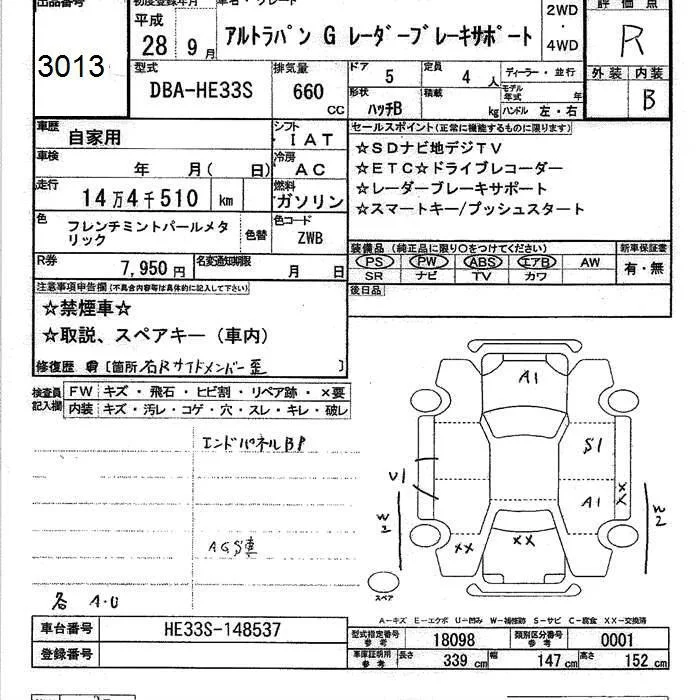 出品番号
3013
初度登録年月
平成
28 9月
車名・グレード
アルトラパン G レーダーブレーキサポート
2WD
・
4WD
評価点
R
外装 内装
B
型式
DBA-HE33S
排気量
660
CC
ドア 5
定員 4 人
形状 ハッチB
積載 kg
ディーラー・並行
モデル年式 年
ハンドル 左・右
車歴
自家用
シフト
IAT
車検
年 月( 日)
冷房
AC
走行
14万4千510 km
燃料
ガソリン
色
フレンチミントパールメタ
リック
色替
色コード
ZWB
R券
7,950円
名変通知期限
月 日
セールスポイント(正常に機能するものに限ります)
☆SDナビ地デジTV
☆ETC☆ドライブレコーダー
☆レーダーブレーキサポート
☆スマートキー/プッシュスタート
装備品(純正品に限り○をつけてください)
PS PW ABS エアB AW
SR ナビ TV カワ
新車保証書
有・無
後日品
注意事項申告欄(不具合内容等は具体的に記入して下さい)
☆禁煙車☆
☆取説、スペアキー(車内)
修復歴 有 [箇所 右Rサイドメンバー歪 ]
検査員
記入欄
FW キズ・飛石・ヒビ割・リペア跡・×要
内装 キズ・汚レ・コゲ・穴・スレ・キレ・破レ
エンドパネルBP
AGS車
各 A・U
A1
S1
A1
XX
U1
W2
W2
XX
XX
スペア
A−キズ E−エクボ U−凹み W−補修跡 S−サビ C−腐食 XX−交換済
車台番号
HE33S-148537
登録番号
型式指定番号
参考
18098
類別区分番号
参考
0001
車庫証明用
参考
長さ 339 cm
幅 147 cm
高さ 152 cm